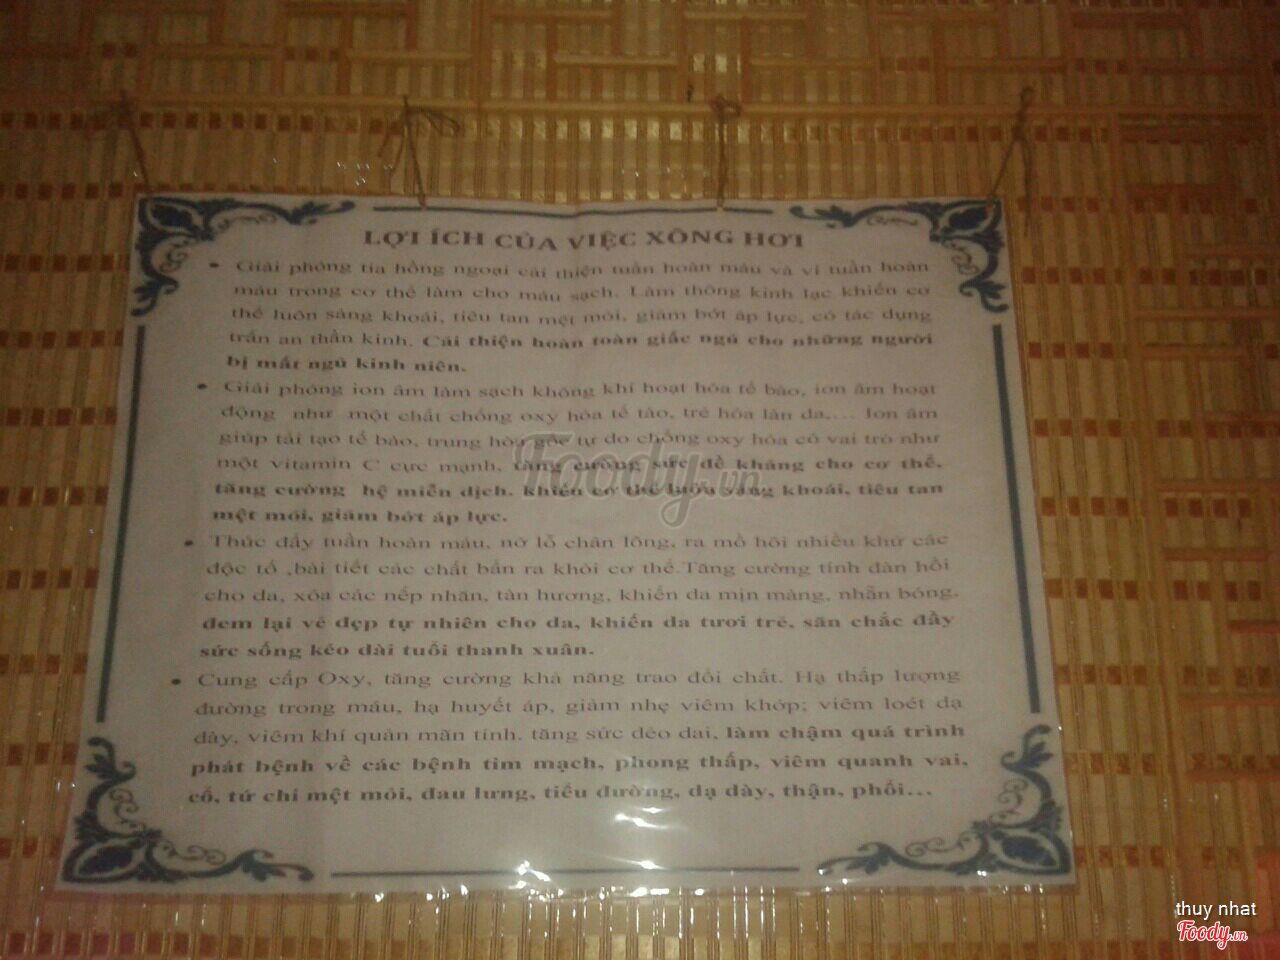 LỢI ÍCH CỦA VIỆC XÔNG HƠI
• Giải phóng tia hồng ngoại cải thiện tuần hoàn máu và vi tuần hoàn
máu trong cơ thể làm cho máu sạch. Làm thông kinh lạc khiến cơ
thể luôn sảng khoái, tiêu tan mệt mỏi, giảm bớt áp lực, có tác dụng
trấn an thần kinh. Cải thiện hoàn toàn giấc ngủ cho những người
bị mất ngủ kinh niên.
• Giải phóng ion âm làm sạch không khí hoạt hóa tế bào, ion âm hoạt
động như một chất chống oxy hóa tế tào, trẻ hóa làn da,... Ion âm
giúp tái tạo tế bào, trung hòa gốc tự do chống oxy hóa có vai trò như
một vitamin C cực mạnh, tăng cường sức đề kháng cho cơ thể,
tăng cường hệ miễn dịch. khiến cơ thể luôn sảng khoái, tiêu tan
mệt mỏi, giảm bớt áp lực.
• Thúc đẩy tuần hoàn máu, nở lỗ chân lông, ra mồ hôi nhiều khử các
độc tố ,bài tiết các chất bẩn ra khỏi cơ thể.Tăng cường tính đàn hồi
cho da, xóa các nếp nhăn, tàn hương, khiến da mịn màng, nhẵn bóng,
đem lại vẻ đẹp tự nhiên cho da, khiến da tươi trẻ, săn chắc đầy
sức sống kéo dài tuổi thanh xuân.
• Cung cấp Oxy, tăng cường khả năng trao đổi chất. Hạ thấp lượng
đường trong máu, hạ huyết áp, giảm nhẹ viêm khớp; viêm loét dạ
dày, viêm khí quản mãn tính. tăng sức dẻo dai, làm chậm quá trình
phát bệnh về các bệnh tim mạch, phong thấp, viêm quanh vai,
cổ, tứ chi mệt mỏi, đau lưng, tiểu đường, dạ dày, thận, phổi...
Foody.vn
thuy nhat
Foody.vn